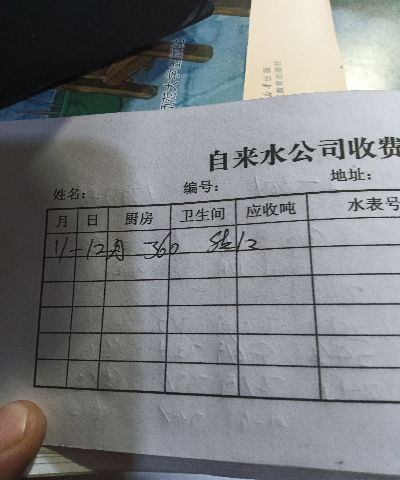 自来水公司收费
姓名： 编号： 地址：
月 日 厨房 卫生间 应收吨 水表号
11-12月 360